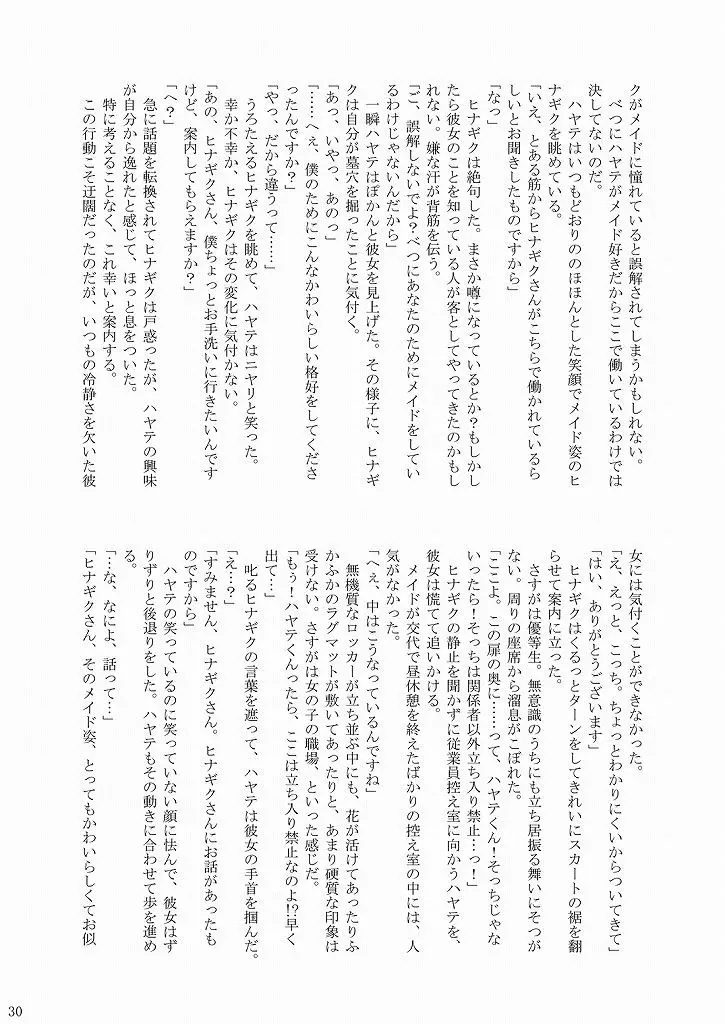 クがメイドに憧れていると誤解されてしまうかもしれない。
べつにハヤテがメイド好きだからここで働いているわけでは
決してないのだ。
ハヤテはいつもどおりののほほんとした笑顔でメイド姿のヒ
ナギクを眺めている。
「いえ、とある筋からヒナギクさんがこちらで働かれているら
しいとお聞きしたものですから」
「なっ」
ヒナギクは絶句した。まさか噂になっているとか？もしかし
たら彼女のことを知っている人が客としてやってきたのかもし
れない。嫌な汗が背筋を伝う。
「ご、誤解しないでよ？べつにあなたのためにメイドをしてい
るわけじゃないんだから」
一瞬ハヤテはぽかんと彼女を見上げた。その様子に、ヒナギ
クは自分が墓穴を掘ったことに気付く。
「あっ、いやっ、あのっ」
「……へぇ、僕のためにこんなかわいらしい格好をしてくださ
ったんですか？」
「やっ、だから違うって……」
うろたえるヒナギクを眺めて、ハヤテはニヤリと笑った。
幸か不幸か、ヒナギクはその変化に気付かない。
「あの、ヒナギクさん、僕ちょっとお手洗いに行きたいんです
けど、案内してもらえますか？」
「へ？」
急に話題を転換されてヒナギクは戸惑ったが、ハヤテの興味
が自分から逸れたと感じて、ほっと息をついた。
特に考えることなく、これ幸いと案内する。
この行動こそ迂闊だったのだが、いつもの冷静さを欠いた彼
女には気付くことができなかった。
「え、えっと、こっち。ちょっとわかりにくいからついてきて」
「はい、ありがとうございます」
ヒナギクはくるっとターンをしてきれいにスカートの裾を翻
らせて案内に立った。
さすがは優等生。無意識のうちにも立ち居振る舞いにそつが
ない。周りの座席から溜息がこぼれた。
「ここよ。この扉の奥に……って、ハヤテくん！そっちじゃな
いったら！そっちは関係者以外立ち入り禁止…っ！」
ヒナギクの静止を聞かずに従業員控え室に向かうハヤテを、
彼女は慌てて追いかける。
メイドが交代で昼休憩を終えたばかりの控え室の中には、人
気がなかった。
「へぇ、中はこうなっているんですね」
無機質なロッカーが立ち並ぶ中にも、花が活けてあったりふ
かふかのラグマットが敷いてあったりと、あまり硬質な印象は
受けない。さすがは女の子の職場、といった感じだ。
「もぅ！ハヤテくんったら、ここは立ち入り禁止なのよ!?早く
出て…」
叱るヒナギクの言葉を遮って、ハヤテは彼女の手首を掴んだ。
「え…？」
「すみません、ヒナギクさん。ヒナギクさんにお話があったも
のですから」
ハヤテの笑っているのに笑っていない顔に怯んで、彼女はず
りずりと後退りをした。ハヤテもその動きに合わせて歩を進め
る。
「…な、なによ、話って…」
「ヒナギクさん、そのメイド姿、とってもかわいらしくてお似
30